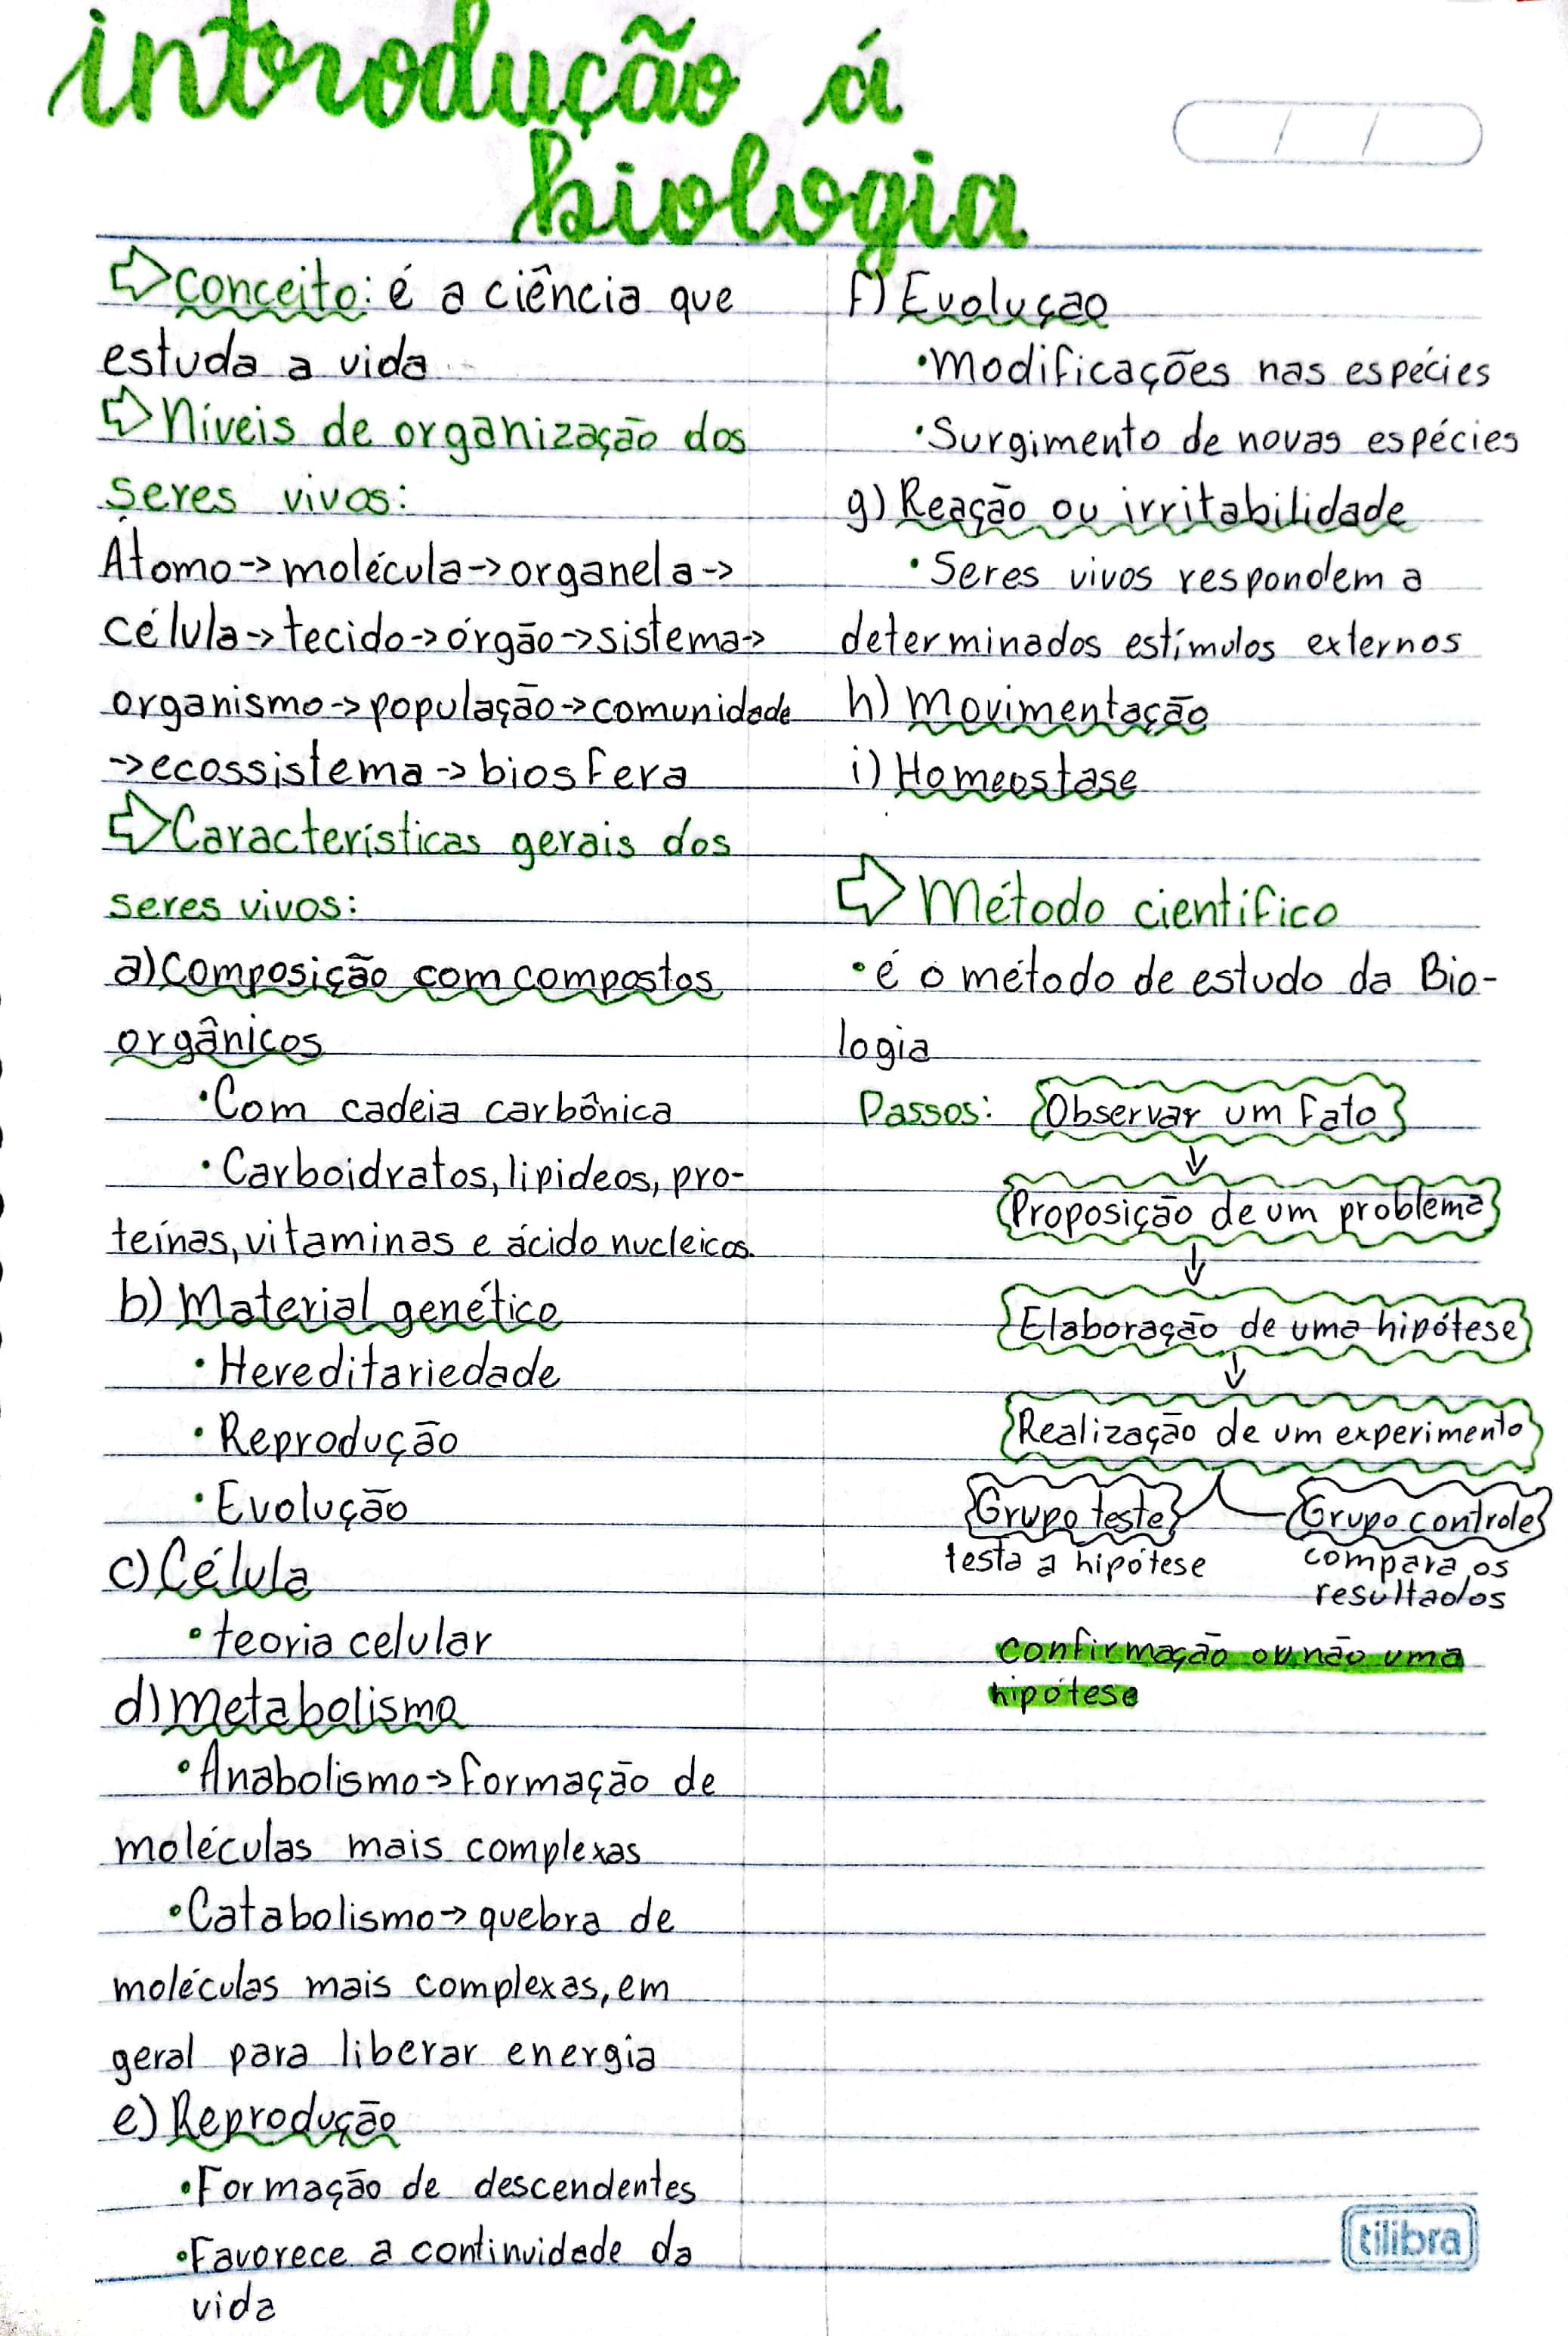 introdução á
biologia
Conceito: é a ciência que
estuda a vida
Níveis de organização dos
seres vivos:
Átomo->molécula->organela->
célula->tecido->órgão->sistema->
organismo->população->comunidade
->ecossistema->biosfera
Características gerais dos
seres vivos:
a) Composição com compostos
orgânicos
•Com cadeia carbônica
•Carboidratos, lipídeos, pro-
teínas, vitaminas e ácido nucleicos.
b) Material genético
•Hereditariedade
•Reprodução
•Evolução
c) Célula
•teoria celular
d) Metabolismo
•Anabolismo->formação de
moléculas mais complexas
•Catabolismo->quebra de
moléculas mais complexas, em
geral para liberar energia
e) Reprodução
•Formação de descendentes
•Favorece a continuidade da
vida
f) Evoluçao
•Modificações nas espécies
•Surgimento de novas espécies
g) Reação ou irritabilidade
•Seres vivos respondem a
determinados estímulos externos
h) Movimentação
i) Homeostase
Método científico
•é o método de estudo da Bio-
logia
Passos: Observar um fato
Proposição de um problema
Elaboração de uma hipótese
Realização de um experimento
Grupo teste Grupo controle
testa a hipótese compara os
resultados
confirmação ou não uma
hipótese
tilibra